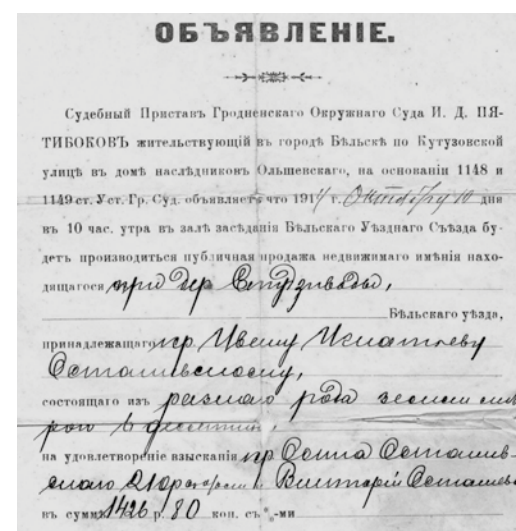 ОБЪЯВЛЕНІЕ.
Судебный Приставъ Гродненскаго Окружнаго Суда И. Д. ПЯ-
ТИБОКОВЪ жительствующій въ городѣ Бѣльскѣ по Кутузовской
улицѣ въ домѣ наслѣдниковъ Ольшевскаго, на основаніи 1148 и
1149 ст. Уст. Гр. Суд. объявляетъ что 1914 г. Октября 10 дня
въ 10 час. утра въ залѣ засѣданія Бѣльскаго Уѣзднаго Съѣзда бу-
детъ производиться публичная продажа недвижимаго имѣнія нахо-
дящагося при дер
Бѣльскаго уѣзда,
принадлежащаго кр.
состоящаго изъ разнаго рода земли мѣ
рою 6 десятинъ,
на удовлетвореніе взысканія кр
въ суммѣ 1426 р. 80 коп. съ %-ми